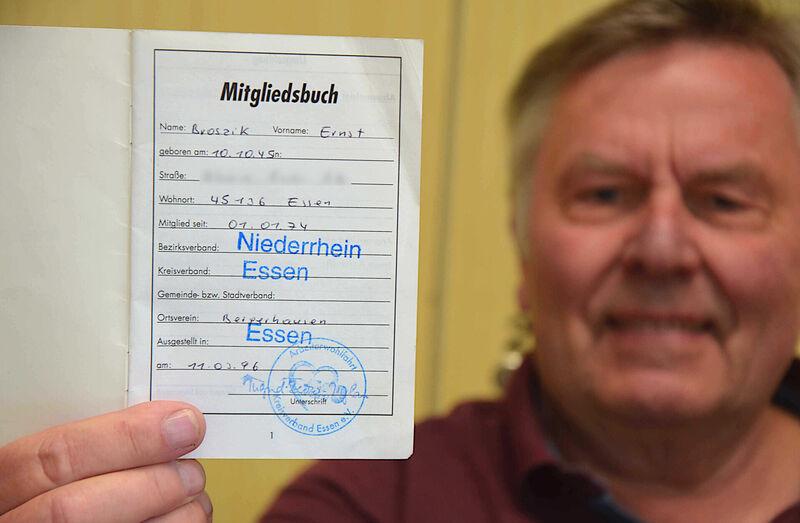 Mitgliedsbuch
Name: Broszik Vorname: Ernst
geboren am: 10.10.45 in:
Straße:
Wohnort: 45136 Essen
Mitglied seit: 01.01.74
Bezirksverband: Niederrhein
Kreisverband: Essen
Gemeinde- bzw. Stadtverband:
Ortsverein: Bergerhausen
Ausgestellt in: Essen
am: 11.03.96
Arbeiterwohlfahrt
Kreisverband Essen e.V.
Unterschrift
1